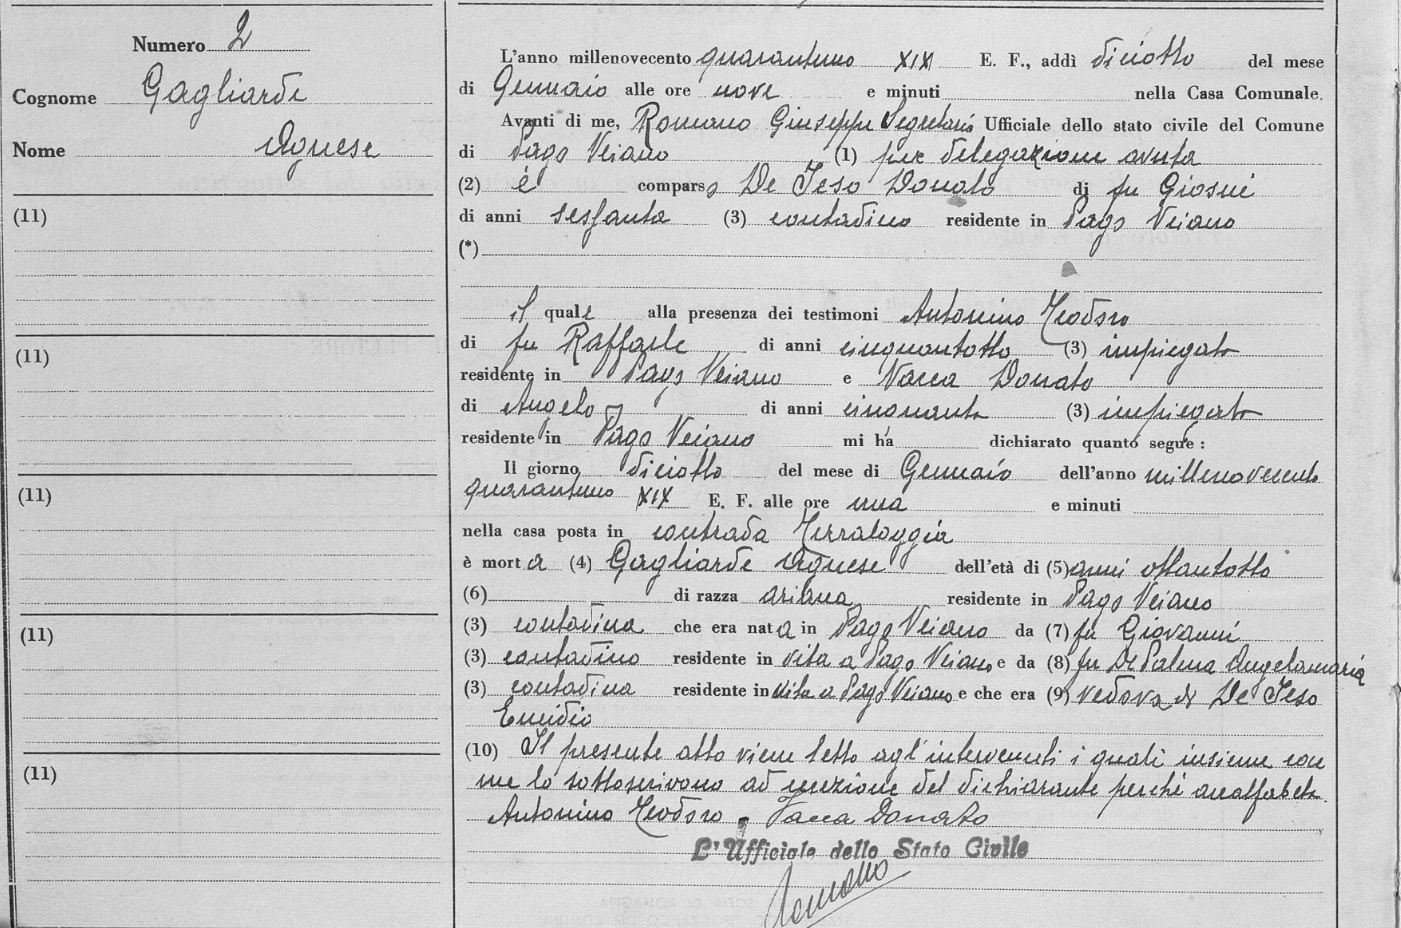 Numero 2
Cognome Gagliarde
Nome Agnese
(11)
(11)
(11)
(11)
(11)
L'anno millenovecento quarantuno XIX E. F., addì diciotto del mese
di Gennaio alle ore nove e minuti nella Casa Comunale.
Avanti di me, Romano Giuseppe Segretario Ufficiale dello stato civile del Comune
di Pago Veiano (1) per delegazione avuta
(2) è comparso De Ieso Donato di fu Giosuè
di anni sessanta (3) contadino residente in Pago Veiano
(*)
il quale alla presenza dei testimoni Antonino Teodoro
di fu Raffaele di anni cinquantotto (3) impiegato
residente in Pago Veiano e Vacca Donato
di Angelo di anni cinquanta (3) impiegato
residente in Pago Veiano mi ha dichiarato quanto segue :
Il giorno diciotto del mese di Gennaio dell'anno millenovecento
quarantuno XIX E. F. alle ore una e minuti
nella casa posta in contrada Terraloggia
è morta (4) Gagliarde Agnese dell'età di (5) anni ottantotto
(6) di razza ariana residente in Pago Veiano
(3) contadina che era nata in Pago Veiano da (7) fu Giovanni
(3) contadino residente in vita a Pago Veiano e da (8) fu De Palma Angelamaria
(3) contadina residente in vita a Pago Veiano e che era (9) vedova di De Ieso
Emidio
(10) Il presente atto viene letto agl'intervenuti i quali insieme con
me lo sottoscrivono ad eccezione del dichiarante perché analfabeta.
Antonino Teodoro - Vacca Donato
L'Ufficiale dello Stato Civile
Romano